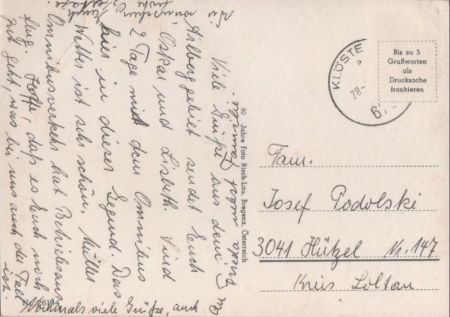 Wir wünschen Euch
frohe Ostertage.
Viele Grüße aus dem
Arlberggebiet sendet Euch
Oskar und Lisbeth. Sind
2 Tage mit dem Omnibus
hier in dieser Gegend. Das
Wetter ist sehr schön. Müllers
Omnibusverkehr hat Betriebsaus-
flug. Hoffe, daß es Euch noch
gut geht, was bei uns auch der Fall
ist.
Nochmals viele Grüße, auch
80 Jahre Foto Risch-Lau, Bregenz, Österreich
Nr. 26194
KLÖSTE
28.
6
Bis zu 5
Grußworten
als
Drucksache
frankieren
Fam.
Josef Podolski
3041 Hützel Nr. 147
Kreis Soltau